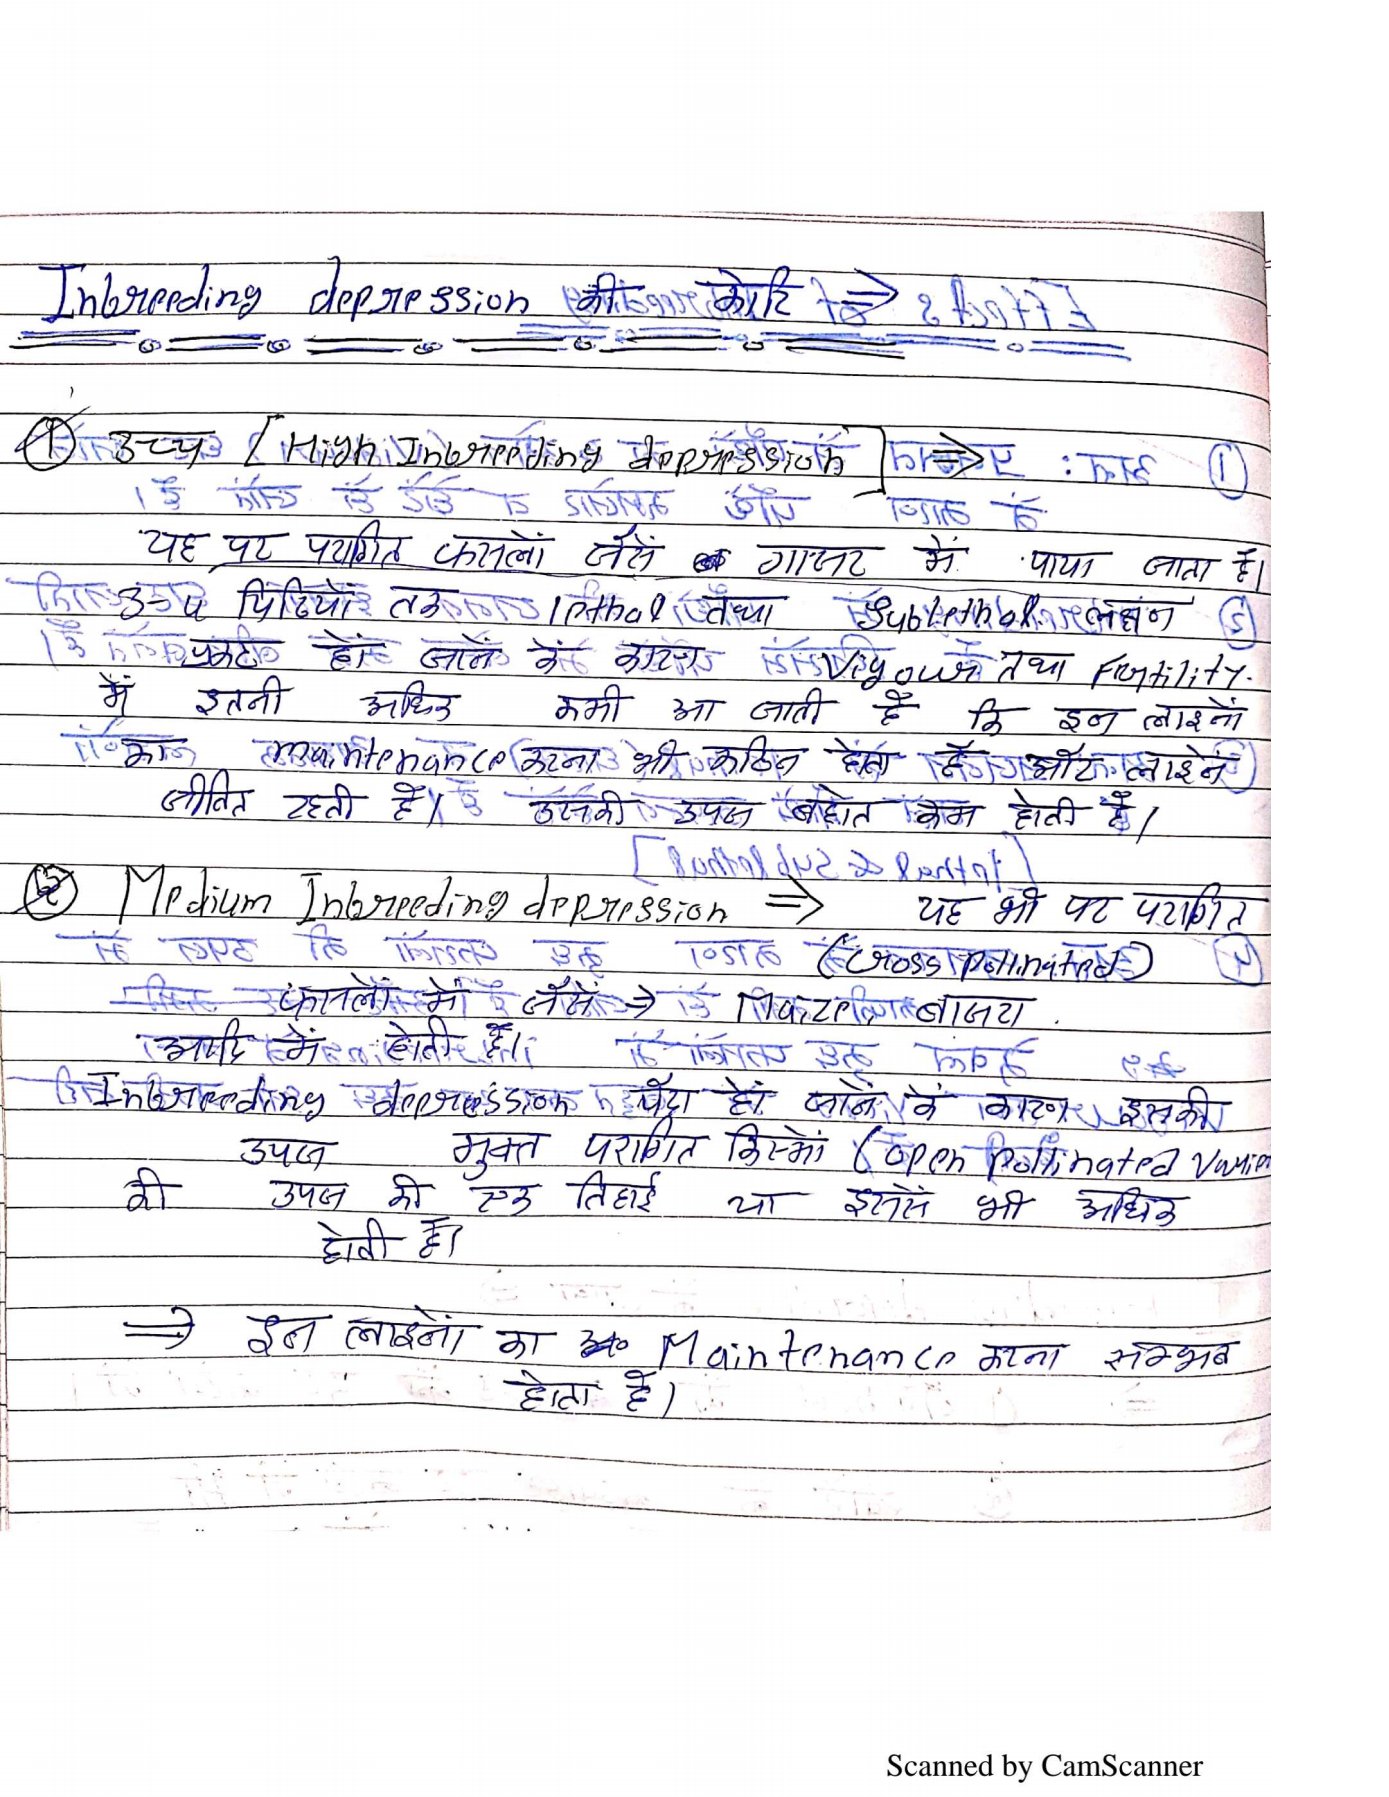 Inbreeding depression की कोटि ⇒
① उच्च [High Inbreeding depression] ⇒
यह पर परागित फसलों जैसे गाजर में पाया जाता है।
3-4 पिढियों तक lethal तथा Sublethal लक्षण
प्रकट हो जाने के कारण Vigour तथा Fertility.
में इतनी अधिक कमी आ जाती है कि इन लाइनों
का maintenance करना भी कठिन होता है और लाइनें
जीवित रहती है। उसकी उपज बहोत कम होती है।
② Medium Inbreeding depression ⇒ यह भी पर परागित
(Cross pollinated)
फसलों में जैसे ⇒ Maize बाजरा
आदि में होती है।
Inbreeding depression पैदा हो जाने के कारण इसकी
उपज मुक्त परागित किस्मों (open pollinated
की उपज की एक तिहाई या इससे भी अधिक
होती है।
⇒ इन लाइनों का Maintenance करना सम्भव
होता है।
Scanned by CamScanner